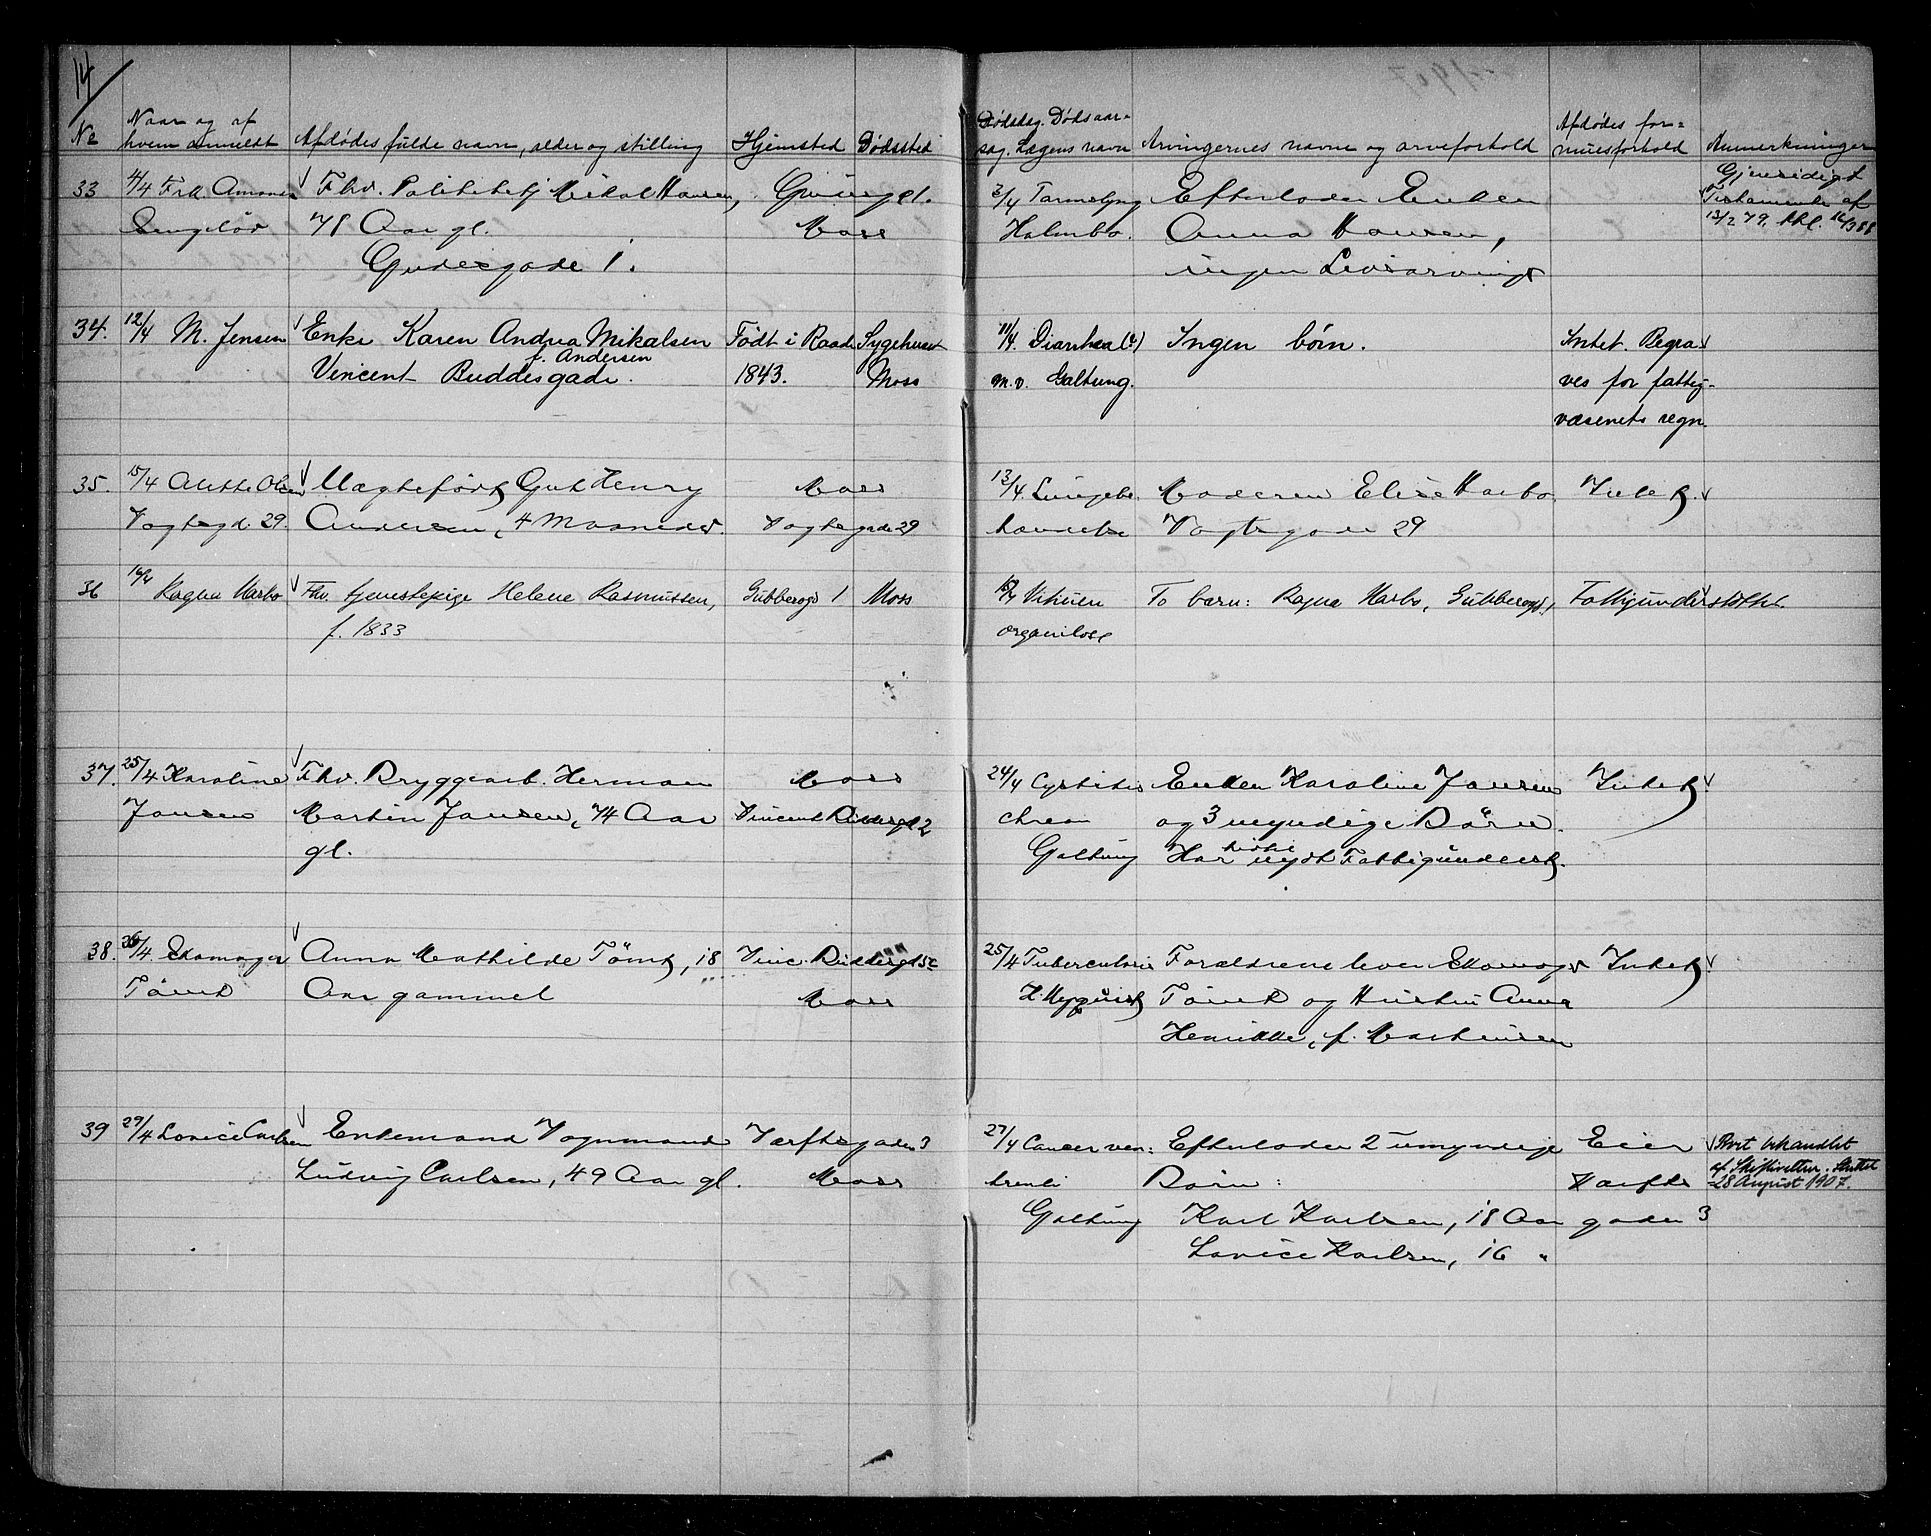 14
No
Naar og af
hvem anmeldt
Afdødes fulde navn, alder og stilling
Hjemsted
Dødssted
Dødsdag. Dødsaar-
sag. Lægens navn
Arvingernes navne og arveforhold
Afdødes for-
muesforhold
Anmerkninger
33
4/4 Frk. Amanda
Fhv. Politibetj Mikal Hansen,
78 Aar gl.
Gudesgade 1.
Moss
3/4 Tarmslyng
Holmbo.
Efterlader Enken
Anna Hansen,
ingen Livsarvinger
Gjensidigt
Testamente af
13/2 79, thl. 16/3 88
34.
12/4 M. Jensen
Enke Karen Andrea Mikalsen
f. Andersen
Vincent Buddesgade.
Født i Raade
1843.
Sygehuset
Moss
11/4. Diarrhea (?)
m.v. Galtung.
Ingen børn.
Intet. Begra-
ves for fattig-
væsenets regn.
35.
15/4 Alette Olsen
Vogtsgd. 29.
Uægtefødt Gut Henry
Andersen, 4 Maaneder.
Moss
Vogtsgade 29
13/4. Lungebe-
tændelse
Moderen Elise Harbo
Vogtsgade 29
Intet.
36
16/4 Ragna Harbo
Fhv. tjenestepige Helene Rasmussen,
f. 1833
Gubberogd 1
Moss
15/4 Vitium
organ. cord.
To barn: Ragna Harbo, Gubberogd 1,
Fattigunderstøttet.
37.
25/4 Karoline
Jansen
Fhv. Bryggearb. Herman
Martin Jansen, 74 Aar
gl.
Moss
Vincent Buddesgd 2
24/4 Cystitis
chron
Galtung
Enken Karoline Jansen
og 3 myndige Børn.
Har nydt Fattigunderst.
Intet
38.
26/4 Skomager
Anna Mathilde Tömt, 18
Aar gammel
Vinc. Buddesgd 5c
Moss
25/4 Tuberculosis
H. Nyquist
Forældrene lever Skomager
og Hustru Anna
Henrikke, f. Martinsen
Intet
39
29/4 Lovice Carlsen
Enkemand Vognmand
Ludvig Carlsen, 49 Aar gl.
Værftsgaden 3
Moss
27/4 Cancer ven-
triculi
Galtung
Efterlader 2 umyndige
Börn:
Karl Karlsen, 18 Aar
Lovice Karlsen, 16 "
Eier
Værfts
gaden 3
Boet behandlet
af Skifteretten. Sluttet
28 August 1907.